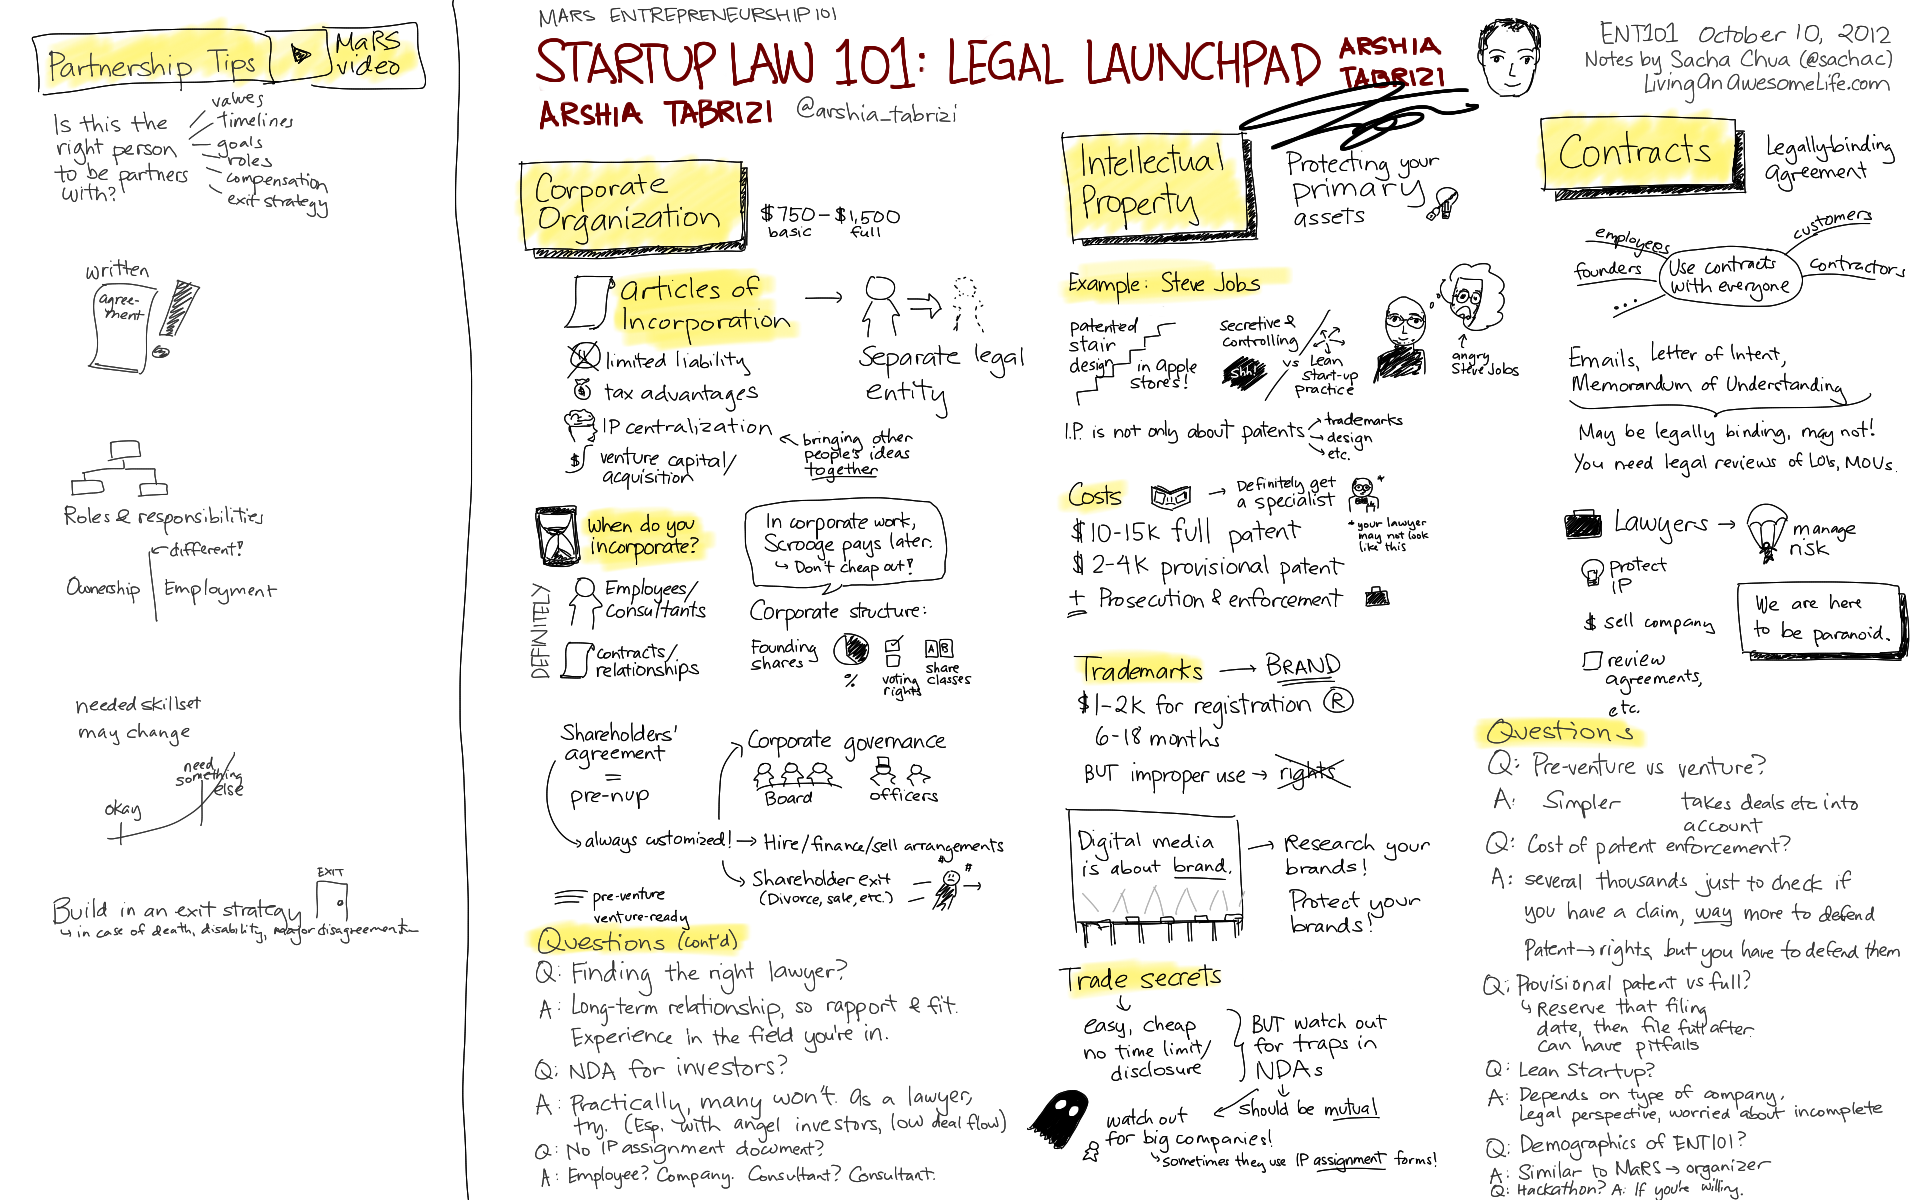 Partnership Tips
MaRS
video
Is this the
right person
to be partners
with?
values
timelines
goals
roles
compensation
exit strategy
written
agree-
ment
Roles & responsibilities
different?
Ownership
Employment
needed skillset
may change
need
something
else
okay
EXIT
Build in an exit strategy
in case of death, disability, major disagreement
MARS ENTREPRENEURSHIP 101
STARTUP LAW 101: LEGAL LAUNCHPAD
ARSHIA
TABRIZI
ARSHIA TABRIZI @arshia_tabrizi
ENT101 October 10, 2012
Notes by Sacha Chua (@sachac)
LivingAnAwesomeLife.com
Corporate
Organization
$750 - $1,500
basic full
Articles of
Incorporation
Separate legal
entity
limited liability
tax advantages
IP centralization
bringing other
people's ideas
together
$ venture capital/
acquisition
When do you
incorporate?
In corporate work,
Scrooge pays later.
Don't cheap out!
DEFINITELY
Employees/
consultants
contracts/
relationships
Corporate structure:
Founding
shares
%
voting
rights
A B
share
classes
Shareholders'
agreement
=
pre-nup
always customized!
Corporate governance
Board
officers
Hire/finance/sell arrangements
Shareholder exit
(Divorce, sale, etc.)
pre-venture
venture-ready
Questions (cont'd)
Q: Finding the right lawyer?
A: Long-term relationship, so rapport & fit.
Experience in the field you're in.
Q: NDA for investors?
A: Practically, many won't. As a lawyer,
try. (Esp. with angel investors, low deal flow)
Q: No IP assignment document?
A: Employee? Company. Consultant? Consultant.
Intellectual
Property
Protecting your
primary
assets
Example: Steve Jobs
patented
stair
design
in Apple
stores!
Secretive &
controlling
Shh!
vs
Lean
Start-up
practice
angry
Steve Jobs
I.P. is not only about patents
trademarks
design
etc.
Costs
Definitely get
a specialist
*
* your lawyer
may not look
like this
$10-15k full patent
$2-4K provisional patent
+ Prosecution & enforcement
Trademarks → BRAND
$1-2K for registration ®
6-18 months
BUT improper use → rights
Digital media
is about brand.
Research your
brands!
Protect your
brands!
Trade secrets
easy, cheap
no time limit/
disclosure
BUT watch out
for traps in
NDAs
should be mutual
watch out
for big companies!
sometimes they use IP assignment forms!
Contracts
Legally-binding
agreement
employees
founders
...
customers
contractors
Use contracts
with everyone
Emails, Letter of Intent,
Memorandum of Understanding
May be legally binding, may not!
You need legal reviews of LOIs, MOUs.
Lawyers →
manage
risk
protect
IP
$ sell company
review
agreements,
etc.
We are here
to be paranoid.
Questions
Q: Pre-venture vs venture?
A: Simpler takes deals etc into
account
Q: Cost of patent enforcement?
A: several thousands just to check if
you have a claim, way more to defend
Patent → rights, but you have to defend them
Q: Provisional patent vs full?
Reserve that filing
date, then file full after.
Can have pitfalls
Q: Lean Startup?
A: Depends on type of company.
Legal perspective, worried about incomplete
Q: Demographics of ENT101?
A: Similar to MaRS → organizer
Q: Hackathon? A: If you're willing.